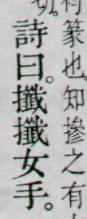 篆也。知摻之有
詩曰。攕攕女手。